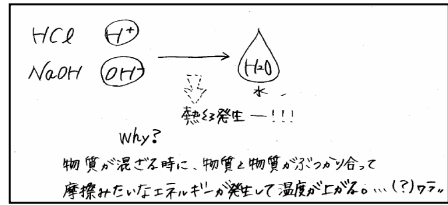 HCl H⁺
NaOH OH⁻
H₂O
水
熱が発生ー!!!
Why?
物質が混ざる時に、物質と物質がぶつかり合って
摩擦みたいなエネルギーが発生して温度が上がる。…(?)